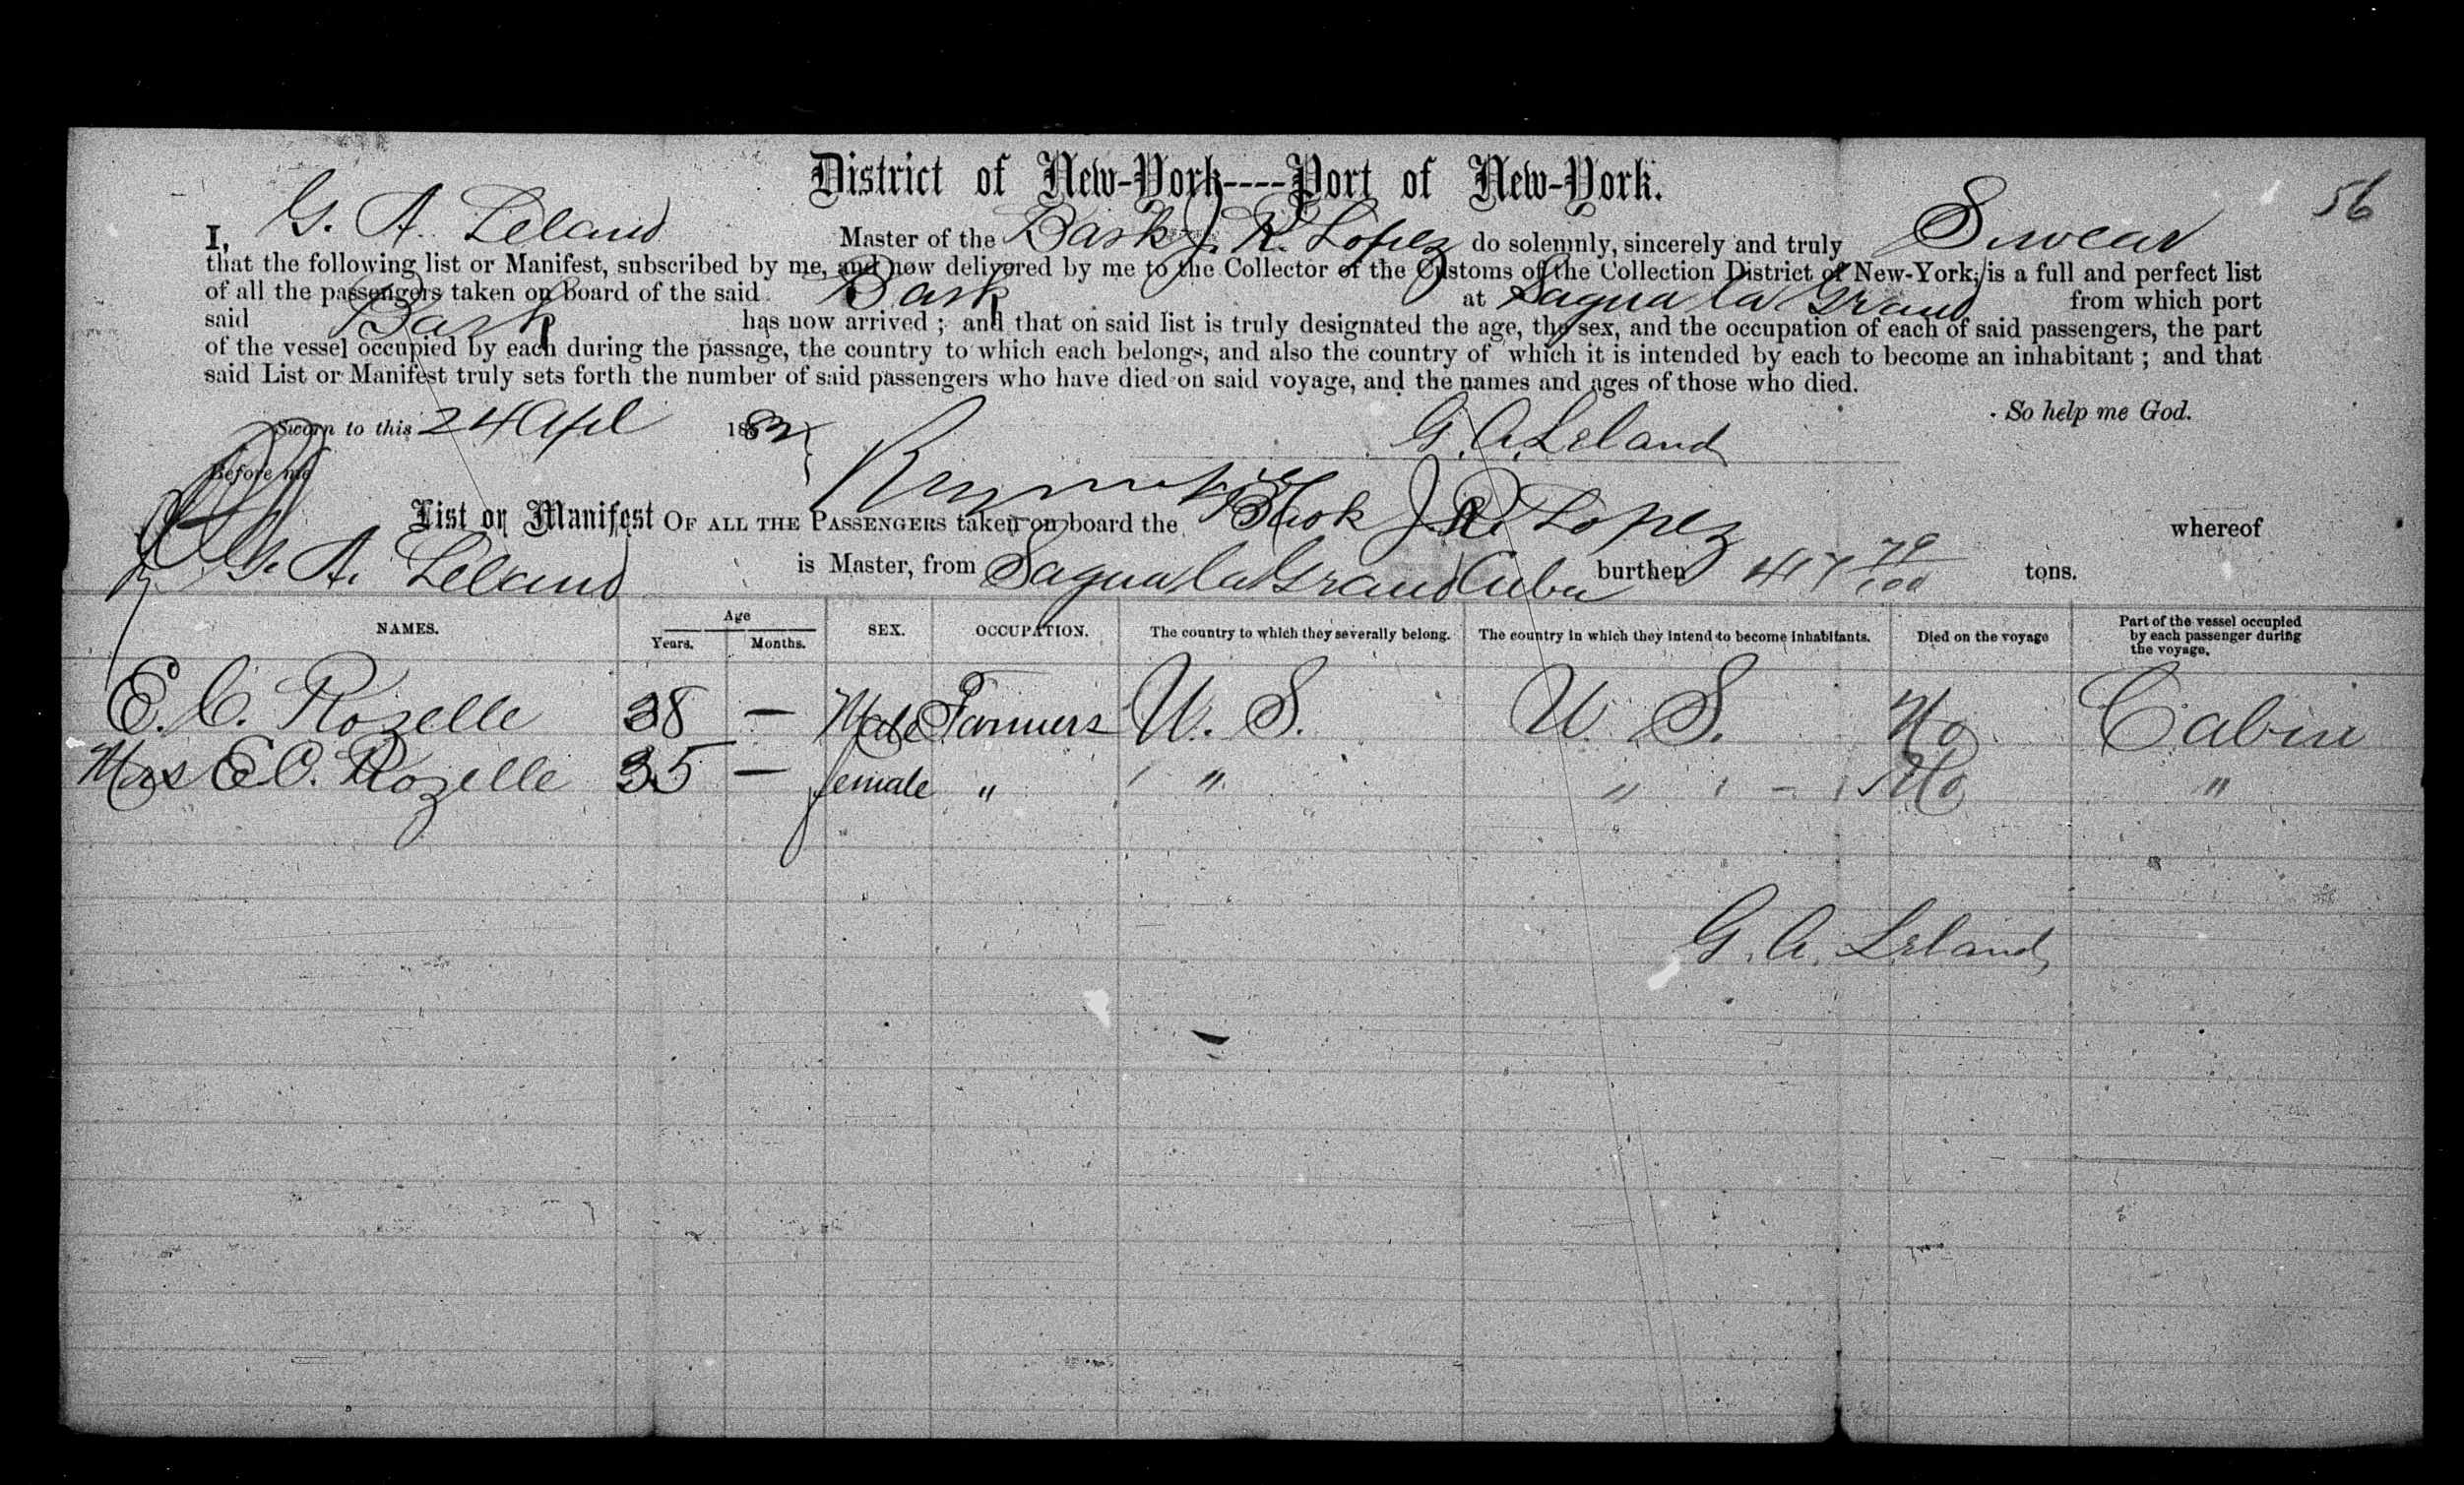 District of New-York----Port of New-York.
56
I, G. A. Leland Master of the Bark J. R. Lopez do solemnly, sincerely and truly Swear
that the following list or Manifest, subscribed by me, and now delivered by me to the Collector of the Customs of the Collection District of New-York, is a full and perfect list
of all the passengers taken on board of the said Bark at Sagua la Grand from which port
said Bark has now arrived ; and that on said list is truly designated the age, the sex, and the occupation of each of said passengers, the part
of the vessel occupied by each during the passage, the country to which each belongs, and also the country of which it is intended by each to become an inhabitant ; and that
said List or Manifest truly sets forth the number of said passengers who have died on said voyage, and the names and ages of those who died.
So help me God.
Sworn to this 24 Apl 1883
G. A. Leland
Before me
List or Manifest OF ALL THE PASSENGERS taken on board the Bark J. R. Lopez whereof
G. A. Leland is Master, from Sagua la Grand Cuba burthen 417 79/100 tons.
NAMES. Age Years. Months. SEX. OCCUPATION. The country to which they severally belong. The country in which they intend to become inhabitants. Died on the voyage Part of the vessel occupied by each passenger during the voyage.
E. C. Rozelle 38 — Male Farmers U. S. U. S. No Cabin
Mrs E C. Rozelle 35 — female " " " No "
G. A. Leland